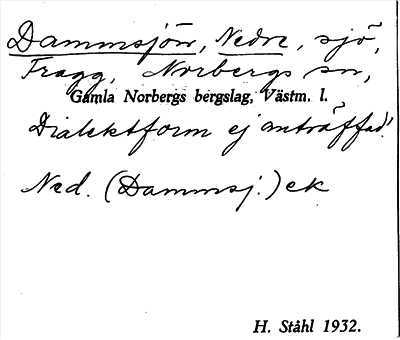 Dammsjön, Nedre, sjö,
Tragg, Norbergs sn,
Gamla Norbergs bergslag, Västm. l.
Dialektform ej anträffad!
Ned. (Dammsj.) ek
H. Ståhl 1932.